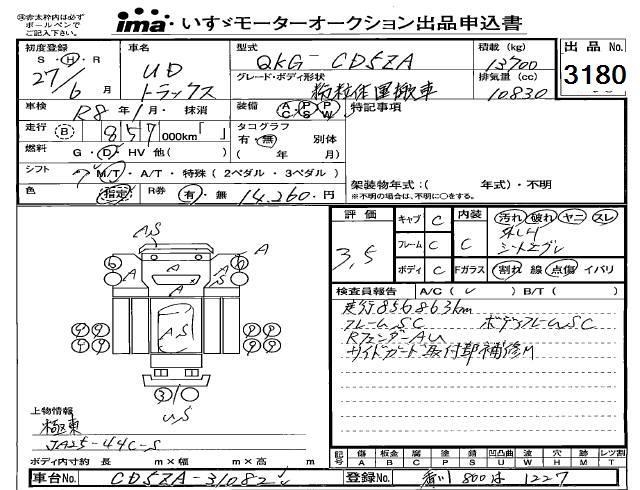 注)太枠内は必ずボールペンでご記入下さい。
ima いすゞモーターオークション出品申込書
初度登録 S・H・R 27/6月
車名 UDトラックス
型式 QKG-CD5ZA
積載(kg) 13700
出品No. 3180
グレード・ボディ形状 粉粒体運搬車
排気量(cc) 10830
車検 R8年1月・抹消
装備 AC PS PW
特記事項
走行 B 857,000km「 」
タコグラフ 有・無 別体 ( 年 月)
燃料 G・D・HV 他( )
シフト 7 M/T・A/T・特殊(2ペダル・3ペダル)
架装物年式:( 年式)・不明
※不明の場合は、不明に○をする。
色 指定 R券 有・無 14,260円
評価 3,5
キャブ C 内装 C 汚れ 破れ ヤニ スレ
フレーム C
ボディ C Fガラス 割れ 線 点傷 イバリ
検査員報告 A/C(レ) B/T( )
走行856863km
フレームSC ボディフレームSC
RフェンダーAU
サイドガード取付部補修M
AS A
6 A A A 6
9 9 AS 9 9
9 9 9 9
3
US
上物情報
極東
JA25-44C-S
ボディ内寸約 長 m×幅 m×高 m
記号 傷A 板金B 腐C 塗P 錆S 凹凸曲U 波W 穴H 跡M レツ割T
車台No. CD5ZA-31082
登録No. 香川 800 は 1227